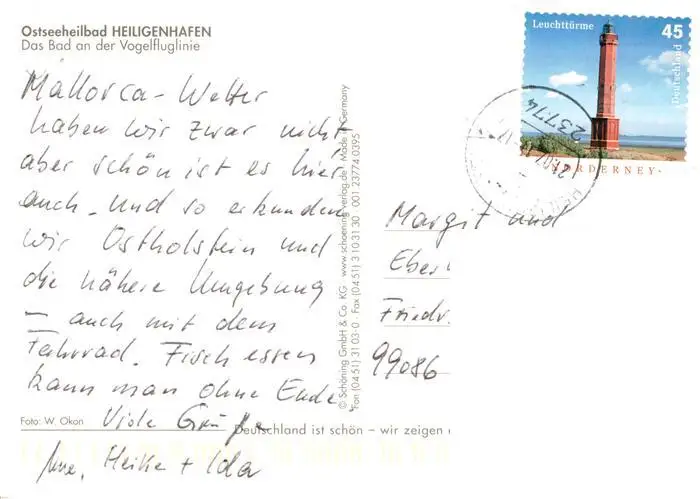 Ostseeheilbad HEILIGENHAFEN
Das Bad an der Vogelfluglinie
Mallorca-Wetter
haben wir zwar nicht
aber schön ist es hier
auch. Und so erkunden
wir Ostholstein und
die nähere Umgebung
– auch mit dem
Fahrrad. Fisch essen
kann man ohne Ende.
Viele Grüße
Heike + Ida
Foto: W. Okon
Deutschland ist schön – wir zeigen
© Schöning GmbH & Co. KG · www.schoening-verlag.de · Made in Germany
Fon (04 51) 31 03-0 · Fax (04 51) 3 10 31 30 · 001 23774 0395
Leuchttürme 45
Deutschland
NORDERNEY
23774
Margit und
Eber
Friedr.
99086